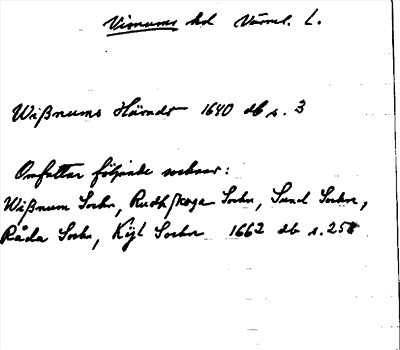 Visnums hd Värml. L.
Wißnums Häradt 1640 db s. 3
Omfattar följande socknar:
Wißnum Sochn, Rudhskoga Sochn, Sund Sochn,
Råda Sochn, Kijl Sochn 1662 db s. 258